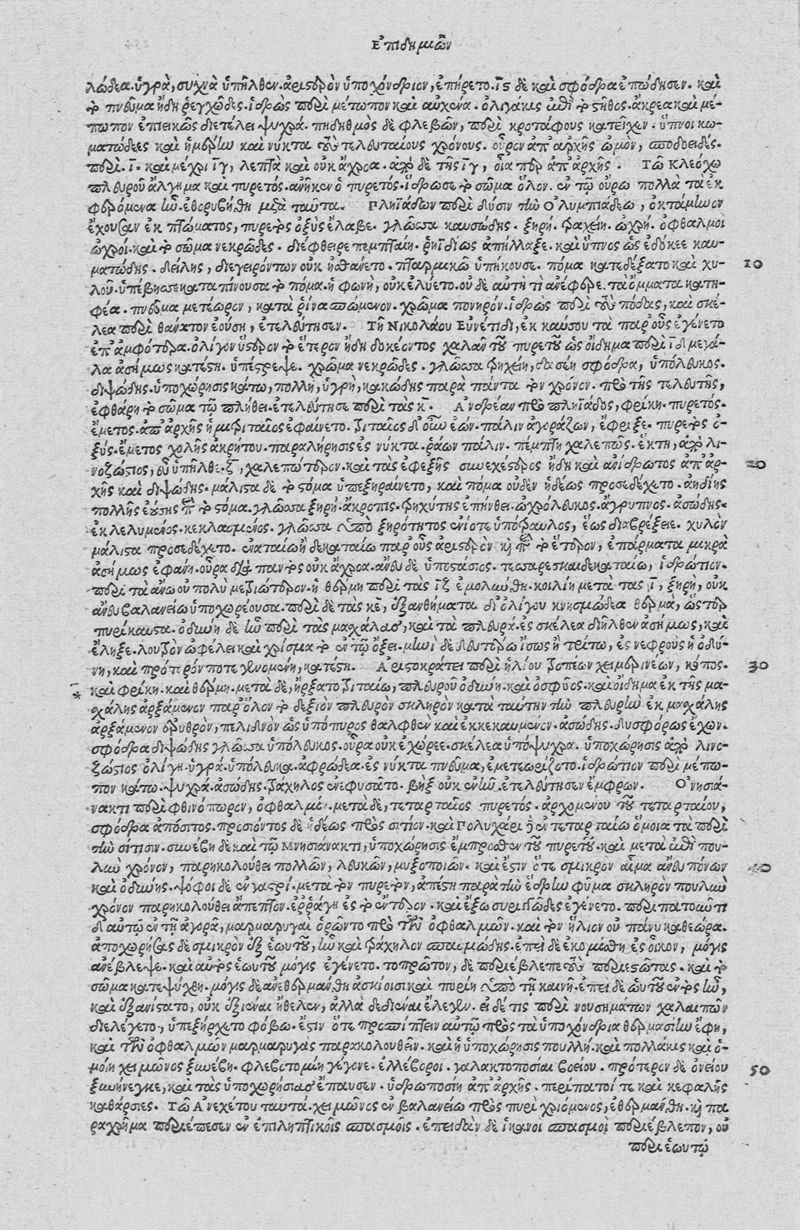 Ἐπιδημιῶν
λώδεα. ὑγρὰ, συχνὰ ὑπῆλθεν. ἀριστερὸν ὑποχόνδριον, ἐπήρετο. ιε δὲ καὶ σφόδρα ἐπώδησεν. καὶ
τὸ πνεῦμα ἤδη ῥεγχῶδες. ἱδρὼς περὶ μέτωπον καὶ αὐχένα. ὀλιγάκις καὶ τὸ στῆθος. ἄκρεα καὶ μέ-
τωπον ἐπιεικῶς διετέλει ψυχρά. πηδηθμὸς δὲ φλεβῶν, περὶ κροτάφους κατεῖχεν. ὕπνοι κω-
ματώδεες καὶ ἡμέρην καὶ νύκτα τοὺς τελευταίους χρόνους. οὖρον ἀπ' ἀρχῆς ὠμὸν, σποδοειδές.
περὶ. ι. καὶ μέχρι ιγ, λεπτὰ καὶ οὐκ ἄχροα. ἀπὸ δὲ τῆς ιγ, οἷα περ ἀπ' ἀρχῆς. Τῷ Κλεόχῳ
πλευροῦ ἄλγημα καὶ πυρετός. ἀνῆκεν ὁ πυρετός. ἵδρωσε τὸ σῶμα ὅλον. ἐν τῷ οὔρῳ πολλὰ τὰ ἐκ
φερόμενα ἦν. ἐθορυβήθη μετὰ ταῦτα. Πληϊάδων περὶ δύσιν τὴν Ὀλυμπιάδεω, ὀκτάμηνον
ἔχουσαν ἐκ πτώματος, πυρετὸς ὀξὺς ἔλαβε. γλῶσσα καυσώδης. ξηρή. τραχείη. ὠχρή. ὀφθαλμοὶ
ὠχροί. καὶ τὸ σῶμα νεκρῶδες. διέφθειρε πεμπταίη. ῥηϊδίως ἀπήλλαξε. καὶ ὕπνος ὡς ἐδόκεε καυ-
ματώδης. δείλης, διεγειρόντων οὐκ ᾐσθάνετο. πταρμικῷ ὑπήκουσε. πόμα κατεδέξατο καὶ χυ- 10
λοῦ. ὑπέβησσε καταπίνουσα τὸ πόμα. ἡ φωνὴ, οὐκ ἐλύετο. οὐδὲ αὐτή τι ἀνέφερε. τὰ ὄμματα κατη-
φέα. πνεῦμα μετέωρον, κατὰ ῥῖνα σπώμενον. χρῶμα πονηρόν. ἱδρὼς περὶ τοὺς πόδας, καὶ σκέ-
λεα περὶ θάνατον ἐούσῃ, ἐτελεύτησεν. Τῇ Νικολάου Εὐνέτιδι, ἐκ καύσου τὰ παρ' οὖς ἐγένετο
ἐπ' ἀμφότερα. ὀλίγον ὕστερον τὸ ἕτερον ἤδη δοκέοντος χαλᾷν τοῦ πυρετοῦ ὡς οἴδημα περὶ ιδ μεγά-
λα ἀσήμως κατέστη. ὑπέστρεψε. χρῶμα νεκρῶδες. γλῶσσα τρηχείη, δασείη σφόδρα, ὑπόλευκος.
διψώδης. ὑποχώρησις κάτω, πολλὴ, ὑγρὴ, κακώδης παρὰ πάντα τὸν χρόνον. πρὸ τῆς τελευτῆς,
ἐφθάρη τὸ σῶμα τῷ πλήθει. ἐτελεύτησε περὶ τὰς κ. Ἀνδρέαν πρὸ πληϊάδος, φρίκη. πυρετός.
ἔμετος. ἀπ' ἀρχῆς ἡμιτριταῖος ἐφαίνετο. τριταῖος δ' οὖν ἐὼν. πάλιν ἀγοράζων, ἔφριξε. πυρετὸς ὀ-
ξύς. ἔμετος χολῆς ἀκρήτου. παραλήρησις ἐς νύκτα. ῥάων πάλιν. πέμπτῃ χαλεπῶς. ἕκτῃ, ἀπὸ λι-
νοζώστιος, εὖ ὑπῆλθε. ζ, χαλεπώτερον. καὶ τὰς ἐφεξῆς συνεχέστερος ἤδη καὶ ἀνίδρωτος ἀπ' ἀρ- 20
χῆς καὶ διψώδης. μάλιστα δὲ τὸ στόμα ὑπεξηραίνετο, καὶ πόμα οὐδὲν ἡδέως προσεδέχετο. ἀηδίης
πολλῆς ἐούσης περὶ τὸ στόμα. γλῶσσα ξηρή. ἄκροπις. τρηχύτης ἐπήνθει. ὠχρόλευκος. ἄγρυπνος. ἀσώδης.
ἐκλελυμένος. κεκλασμένος. γλῶσσα ὑπὸ ξηρότητος ἐνίοτε ὑπότραυλος, ἕως διαβρέξειε. χυλὸν
μάλιστα προσεδέχετο. ἐναταίῳ ἢ δεκαταίῳ παρ' οὖς ἀριστερὸν καὶ περὶ τὸ ἕτερον, ἐπάρματα μικρὰ
ἀσήμως ἐφάνη. οὖρα διὰ παντὸς οὐκ ἄχροα. ἄνευ δὲ ὑποστάσιος. τεσσαρεσκαιδεκαταίῳ, ἱδρώτιον.
περὶ τὰ ἄνω οὐ πολὺ μετριώτερον. ἡ θέρμη περὶ τὰς ιζ ἐμολύνθη. κοιλίη μετὰ τὰς ι, ξηρὴ, οὐκ
ἄνευ βαλανείῳ ὑποχωρέουσα. περὶ δὲ τὰς κε, ἐξανθήματα δι' ὀλίγου κνησμώδεα θερμὰ, ὥσπερ
πυρίκαυστα. ὀδύνη δὲ ἦν περὶ τὰς μασχάλας, καὶ τὰ πλευρά. ἐς σκέλεα διῆλθεν ἀσήμως, καὶ
ἔληξε. λουτρὸν ὠφέλει καὶ χρίσμα τὸ ἐν τῷ ὄξει. μηνὶ δὲ δευτέρῳ ἴσως ἢ τρίτῳ, ἐς νεφροὺς ἡ ὀδύ-
νη, καὶ πρότερόν ποτε γενομένη, κατέστη. Ἀριστοκράτει περὶ ἡλίου τροπέων χειμερινέων, κόπος. 30
καὶ φρίκη. καὶ θέρμη. μετὰ δὲ, ἤρξατο τριταίῳ, πλευροῦ ὀδύνη. καὶ ὀσφύος. καὶ οἴδημα ἐκ τῆς μα-
σχάλης ἀρξάμενον παρ' ὅλον τὸ δεξιὸν πλευρὸν σκληρὸν κατὰ ταύτην τὴν πλευρὴν ἐκ μασχάλης
ἀρξάμενον ἐρυθρὸν, πελιδνὸν ὡς ὑπὸ πυρὸς θαλφθὲν καὶ ἐκκεκαυμένον. ἀσώδης. δυσφόρως ἔχων.
σφόδρα διψώδης γλῶσσα ὑπόλευκος. οὖρα οὐκ ἐχώρεε. σκέλεα ὑπόψυχρα. ὑποχώρησις ἀπὸ λινο-
ζώστιος ὀλίγη. ὑγρά. ὑπόλευκα. ἀφρώδεα. ἐς νύκτα πνεῦμα, ἐμετεωρίζετο. ἱδρώτιον περὶ μέτω-
πον κάτω. ψυχρά. ἀσώδης. τράχηλος ἐνεφυσᾶτο. βὴξ οὐκ ἐνῆν. ἐτελεύτησεν ἔμφρων. Ὀνησιά-
νακτι περὶ φθινόπωρον, ὀφθαλμίη. μετὰ δὲ, τεταρταῖος πυρετός. ἀρχομένου τοῦ τεταρταίου,
σφόδρα ἀπόσιτος. προσιόντος δὲ ἡδέως πρὸς σιτίον. καὶ Πολυχάρει ἐν τεταρταίῳ ὅμοια τὰ περὶ
τὴν σίτισιν. συνέβη δὲ καὶ τῷ Μνησιάνακτι, ὑποχώρησις ἔμπροσθεν τοῦ πυρετοῦ. καὶ μετὰ καὶ που-
λὺν χρόνον, παρηκολούθει πολλῶν, λευκῶν, μυξοποιῶν. καὶ ἔστιν ὅτε σμικρὸν αἷμα ἄνευ πόνων 40
καὶ ὀδύνης. ψόφοι δὲ ἐν γαστρί. μετὰ τὸν πυρετὸν, ἀπέστη παρὰ τὴν ἕδρην φῦμα σκληρὸν πουλὺν
χρόνον παρηκολούθει ἄπεπτον. ἐρράγη ἐς τὸ ἔντερον. καὶ ἔξω συριγγῶδες ἐγένετο. περιπατοῦντι
δ' αὐτῷ ἐν τῇ ἀγορᾷ, μαρμαρυγαὶ ὁρῶντο πρὸ τῶν ὀφθαλμῶν. καὶ τὸν ἥλιον οὐ πάνυ καθεώρα.
ἀποχωρήσας δὲ σμικρὸν ἐξ ἑωυτοῦ, ἦν καὶ τράχηλος σπασμώδης. ἐπεὶ δὲ ἐκομίσθη ἐς οἶκον, μόγις
ἀνέβλεψε. καὶ αὐτὸς ἑωυτοῦ μόγις ἐγένετο. τοπρῶτον, δὲ περιέβλεπε τοὺς περιεστῶτας. καὶ τὸ
σῶμα κατεψύχη. μόγις δὲ ἀνεθερμάνθη ἀσκίοισι καὶ πυρίῃ ὑπὸ τῇ καινῇ. ἐπεὶ δὲ ἑωυτοῦ ἐντὸς ἦν,
καὶ ἐξανίστατο, οὐκ ἐξιέναι ἤθελεν, ἀλλὰ δεδιέναι ἔλεγεν. εἰ δέ τις περὶ νουσημάτων χαλεπῶν
διελέγετο, ὑπεξήρχετο φόβῳ. ἔστιν ὅτε προσπίπτειν αὐτῷ πρὸς τὰ ὑποχόνδρια θερμασίην ἔφη,
καὶ τῶν ὀφθαλμῶν μαρμαρυγὰς παρακολουθεῖν. καὶ ἡ ὑποχώρησις πουλλή. καὶ πολλάκις καὶ ὁ-
μοίη χειμῶνος ξυνέβη. φλεβοτομίη γέγονε. ἐλλέβοροι. γαλακτοποσίαι βοείου. πρότερον δὲ ὀνείου 50
ξυνήνεγκε, καὶ τὰς ὑποχωρήσιας ἔπαυσεν. ὑδροποσίη ἀπ' ἀρχῆς. περίπατοί τε καὶ κεφαλῆς
καθάρσιες. Τῷ Ἀνεχέτου ταὐτά. χειμῶνος ἐν βαλανείῳ πρὸς πυρὶ χριόμενος, ἐθερμάνθη. καὶ πα
ραχρῆμα περιέπεσεν ἐν ἐπιληπτικοῖς σπασμοῖς. ἐπειδὰν δὲ ἱκανοὶ σπασμοὶ περιέβλεπον, οὐ
περὶ ἑωυτῷ